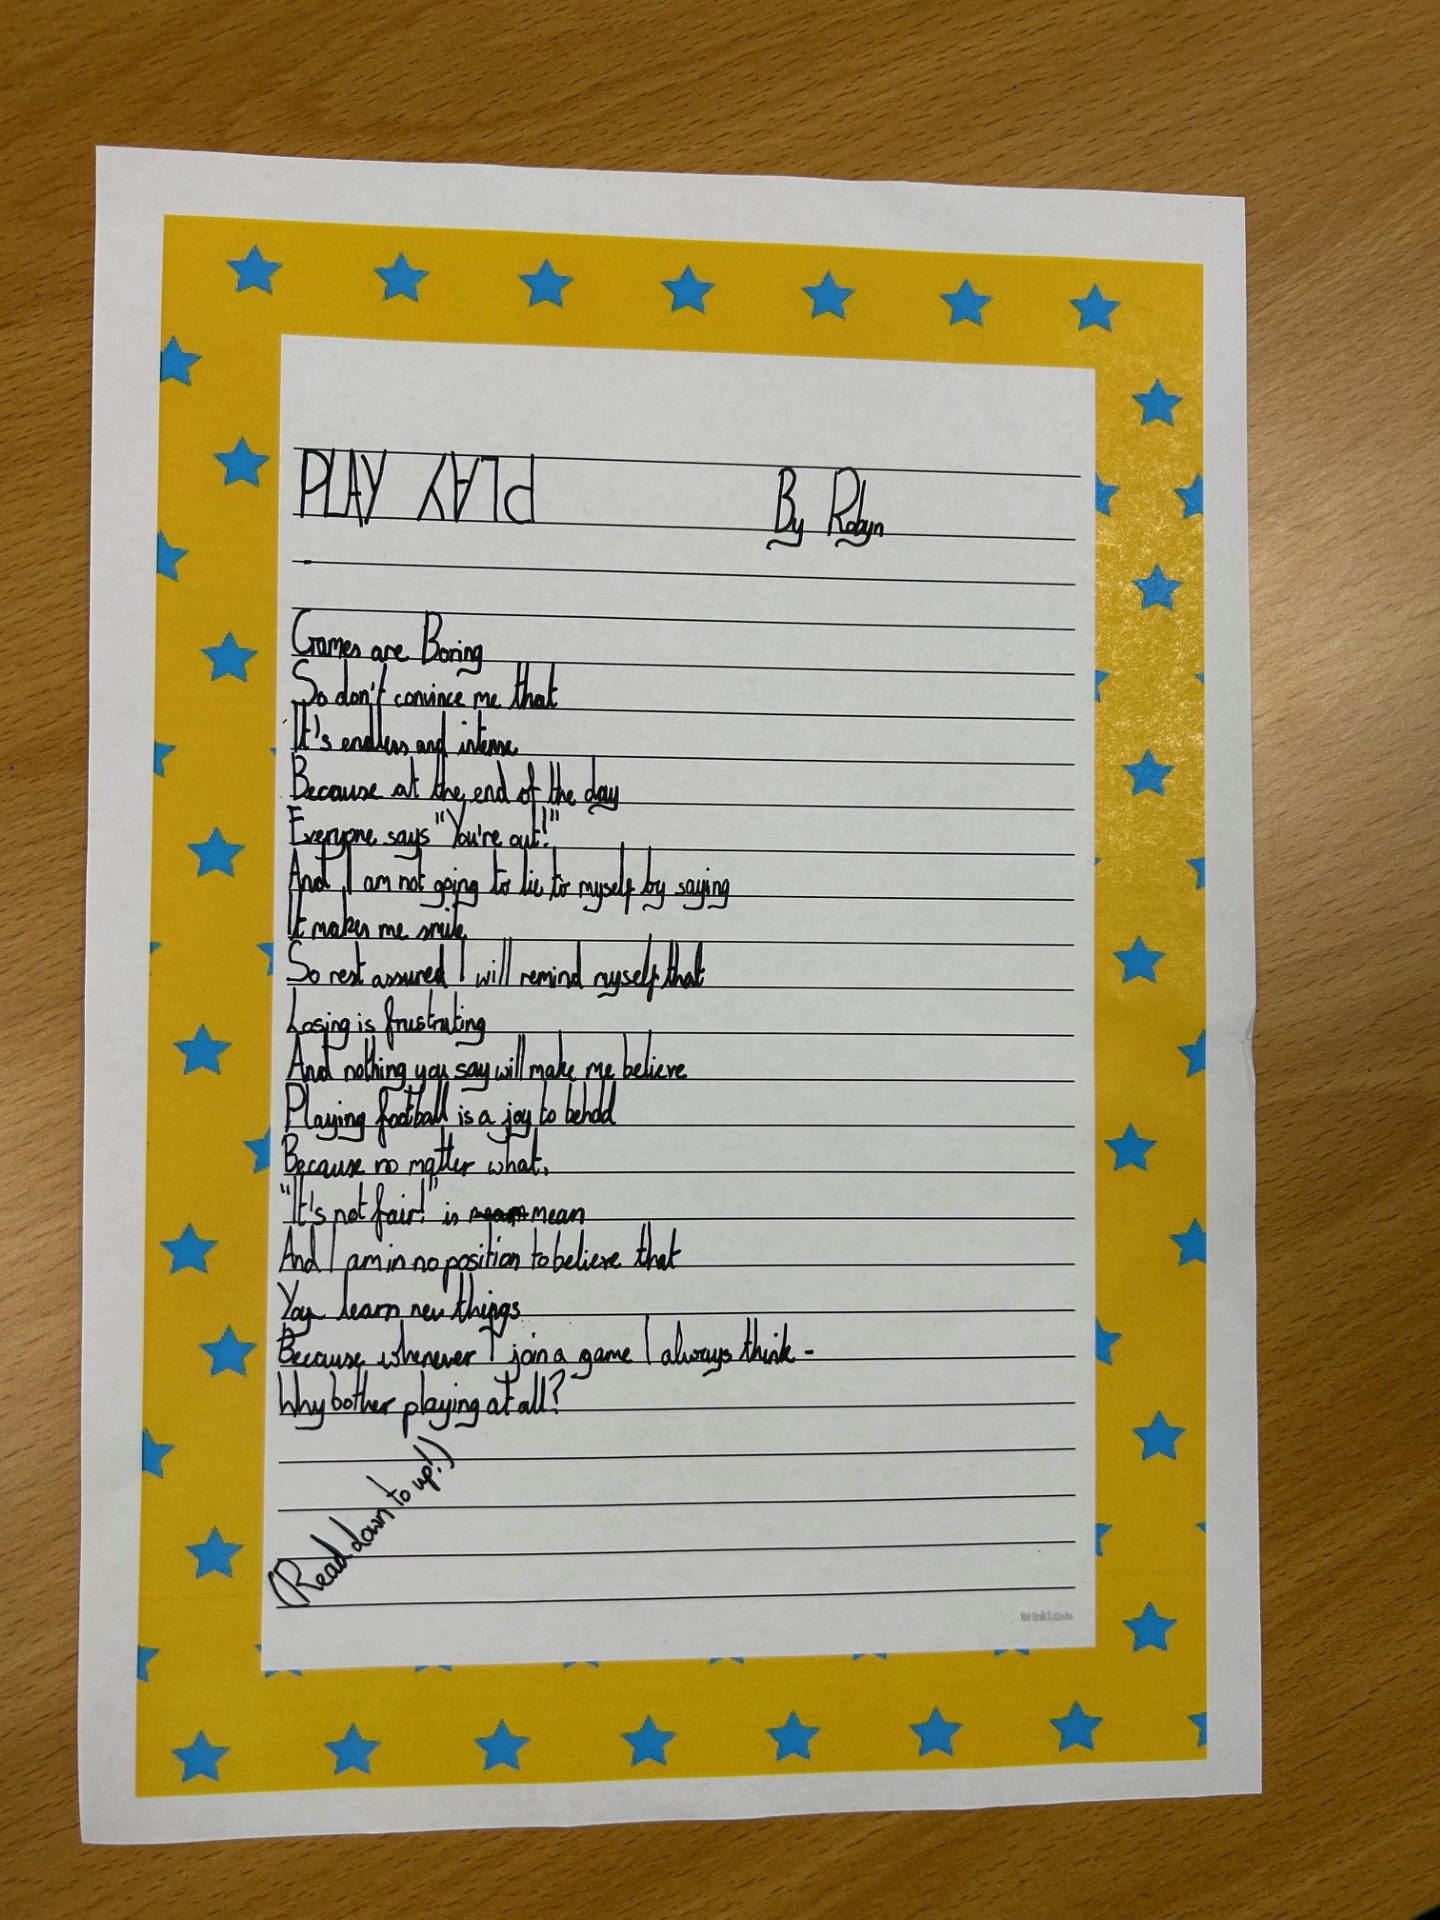 PLAY PLAY By Robyn
Games are Boring
So don't convince me that
It's endless and intense
Because at the end of the day
Everyone says "You're out!"
And I am not going to lie to myself by saying
It makes me smile
So rest assured I will remind myself that
Losing is frustrating
And nothing you say will make me believe
Playing football is a joy to behold
Because no matter what,
"It's not fair!" is mean
And I am in no position to believe that
You learn new things
Because whenever I join a game I always think -
Why bother playing at all?
(Read down to up!)